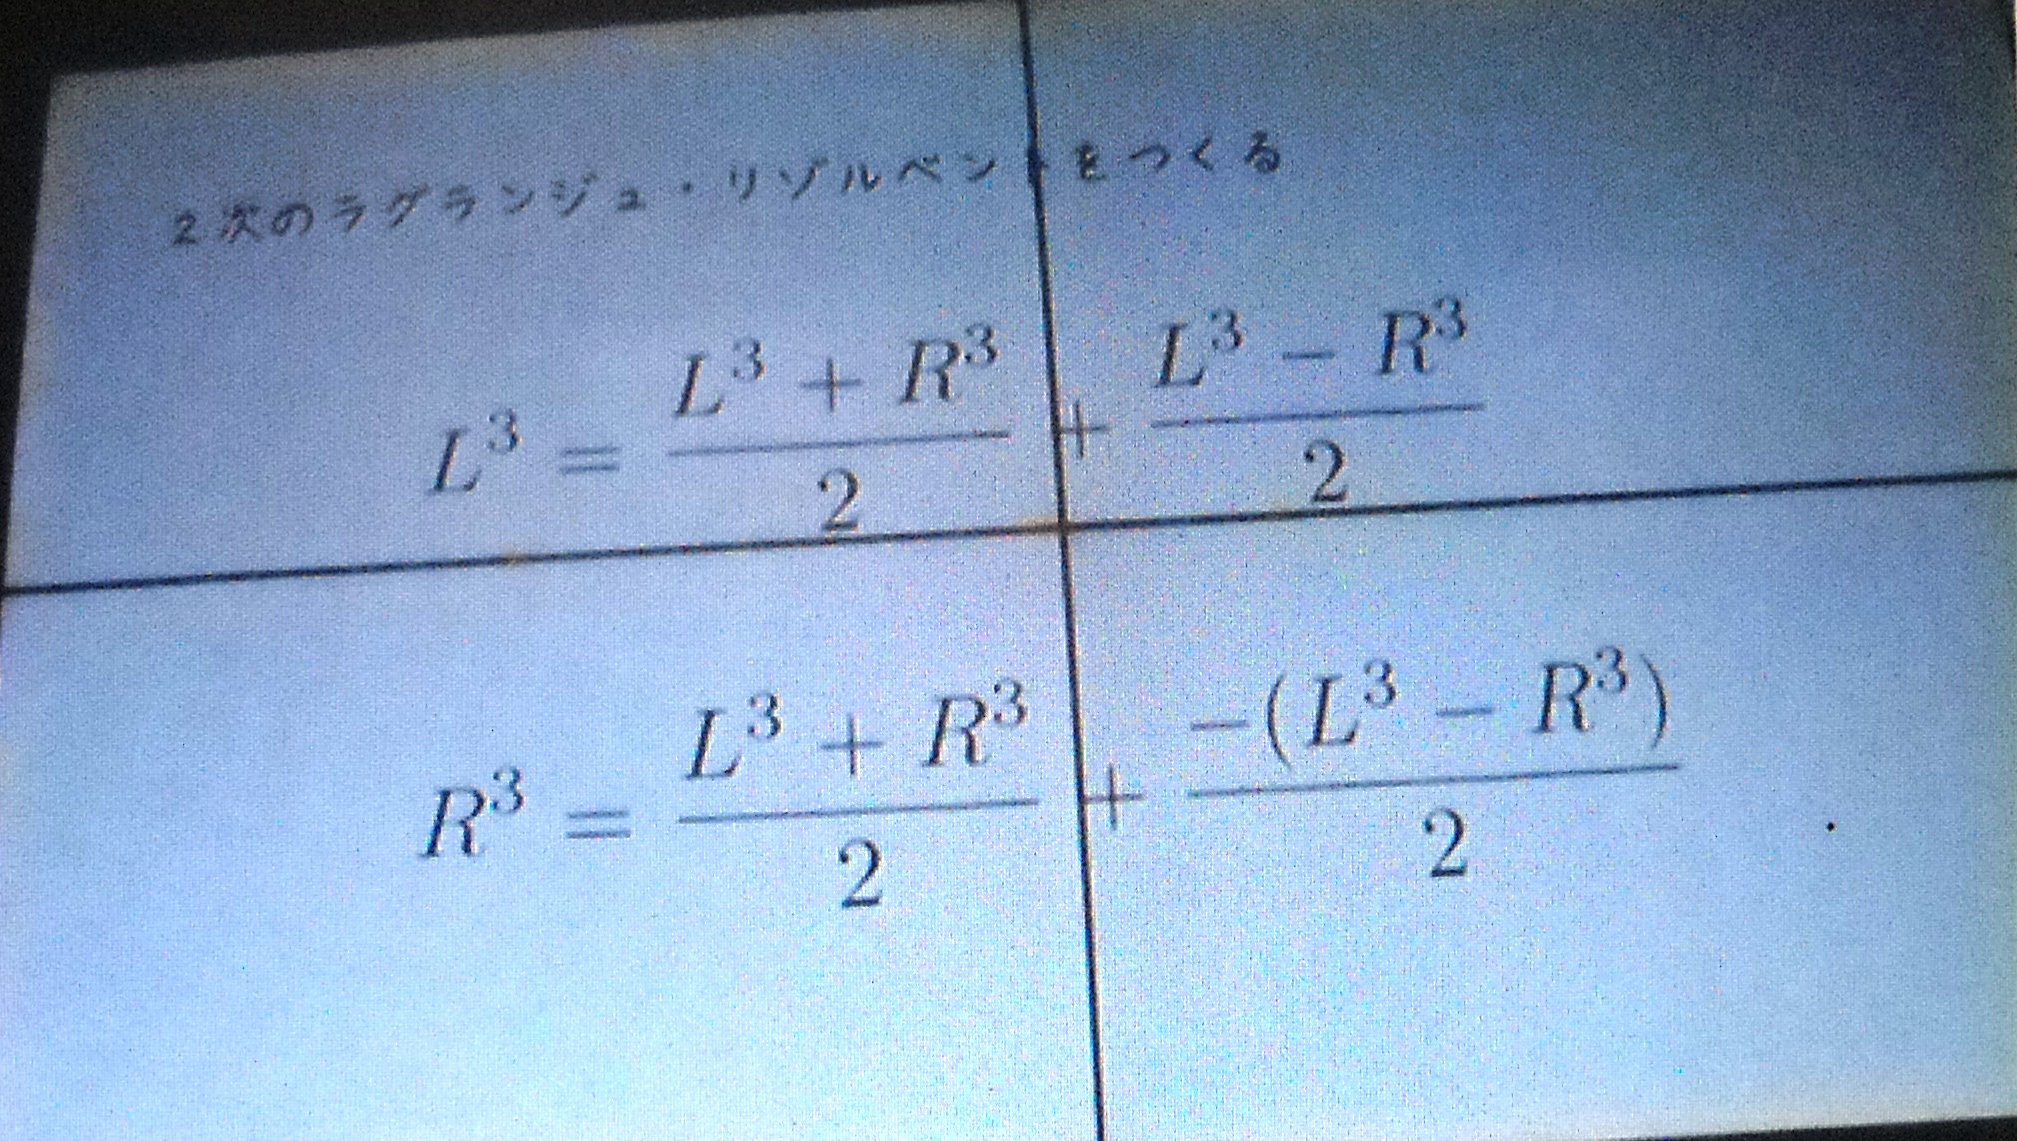 2次のラグランジュ・リゾルベントをつくる
L³ = (L³ + R³)/2 + (L³ − R³)/2
R³ = (L³ + R³)/2 + −(L³ − R³)/2